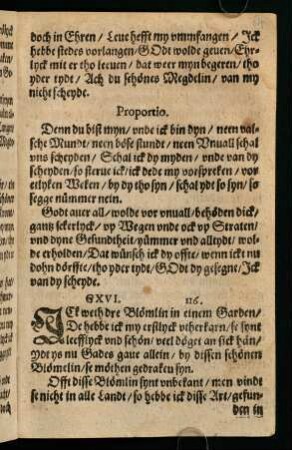 doch in Ehren / Leue hefft my vmmfangen / Jck
hebbe stedes vorlangen / GOdt wolde geuen / Ehr-
lyck mit er tho leuen / dat weer myn begeren / tho
yder tydt / Ach du schönes Megdelin / van my
nicht scheyde.
Proportio.
Denn du bist myn / vnde ick bin dyn / neen val-
sche Mundt / neen böse stunde / neen Vnuall schal
vns scheyden / Schal ick dy myden / vnde van dy
scheyden / so sterue ick / ick dede my vorspreken / vor
etlyken Weken / by dy tho syn / schal ydt so syn / so
segge nümmer nein.
Godt auer all / wolde vor vnuall / behöden dick /
gantz sekerlyck / vp Wegen vnde ock vp Straten /
vnd dyne Gesundtheit / yümmer vnd alltydt / wol-
de erholden / Dat wünsch ick dy offte / wenn ickt nu
dohn dörffte / tho yder tydt / GOdt dy gesegne / Jck
van dy scheyde.
CXVI. 116.
JCk weth dre Blömlin in einem Garden /
De hebbe ick my erstlyck vtherkarn / se synt
leefflyck vnd schön / veel döget an sick hän /
Ydt ys nu Gades gaue allein / by dissen schönen
Blömelin / se möthen gedraken syn.
Offt disse Blömlin synt vnbekant / men vindt
se nicht in alle Landt / so hebbe ick disse Art / gefun-
den in